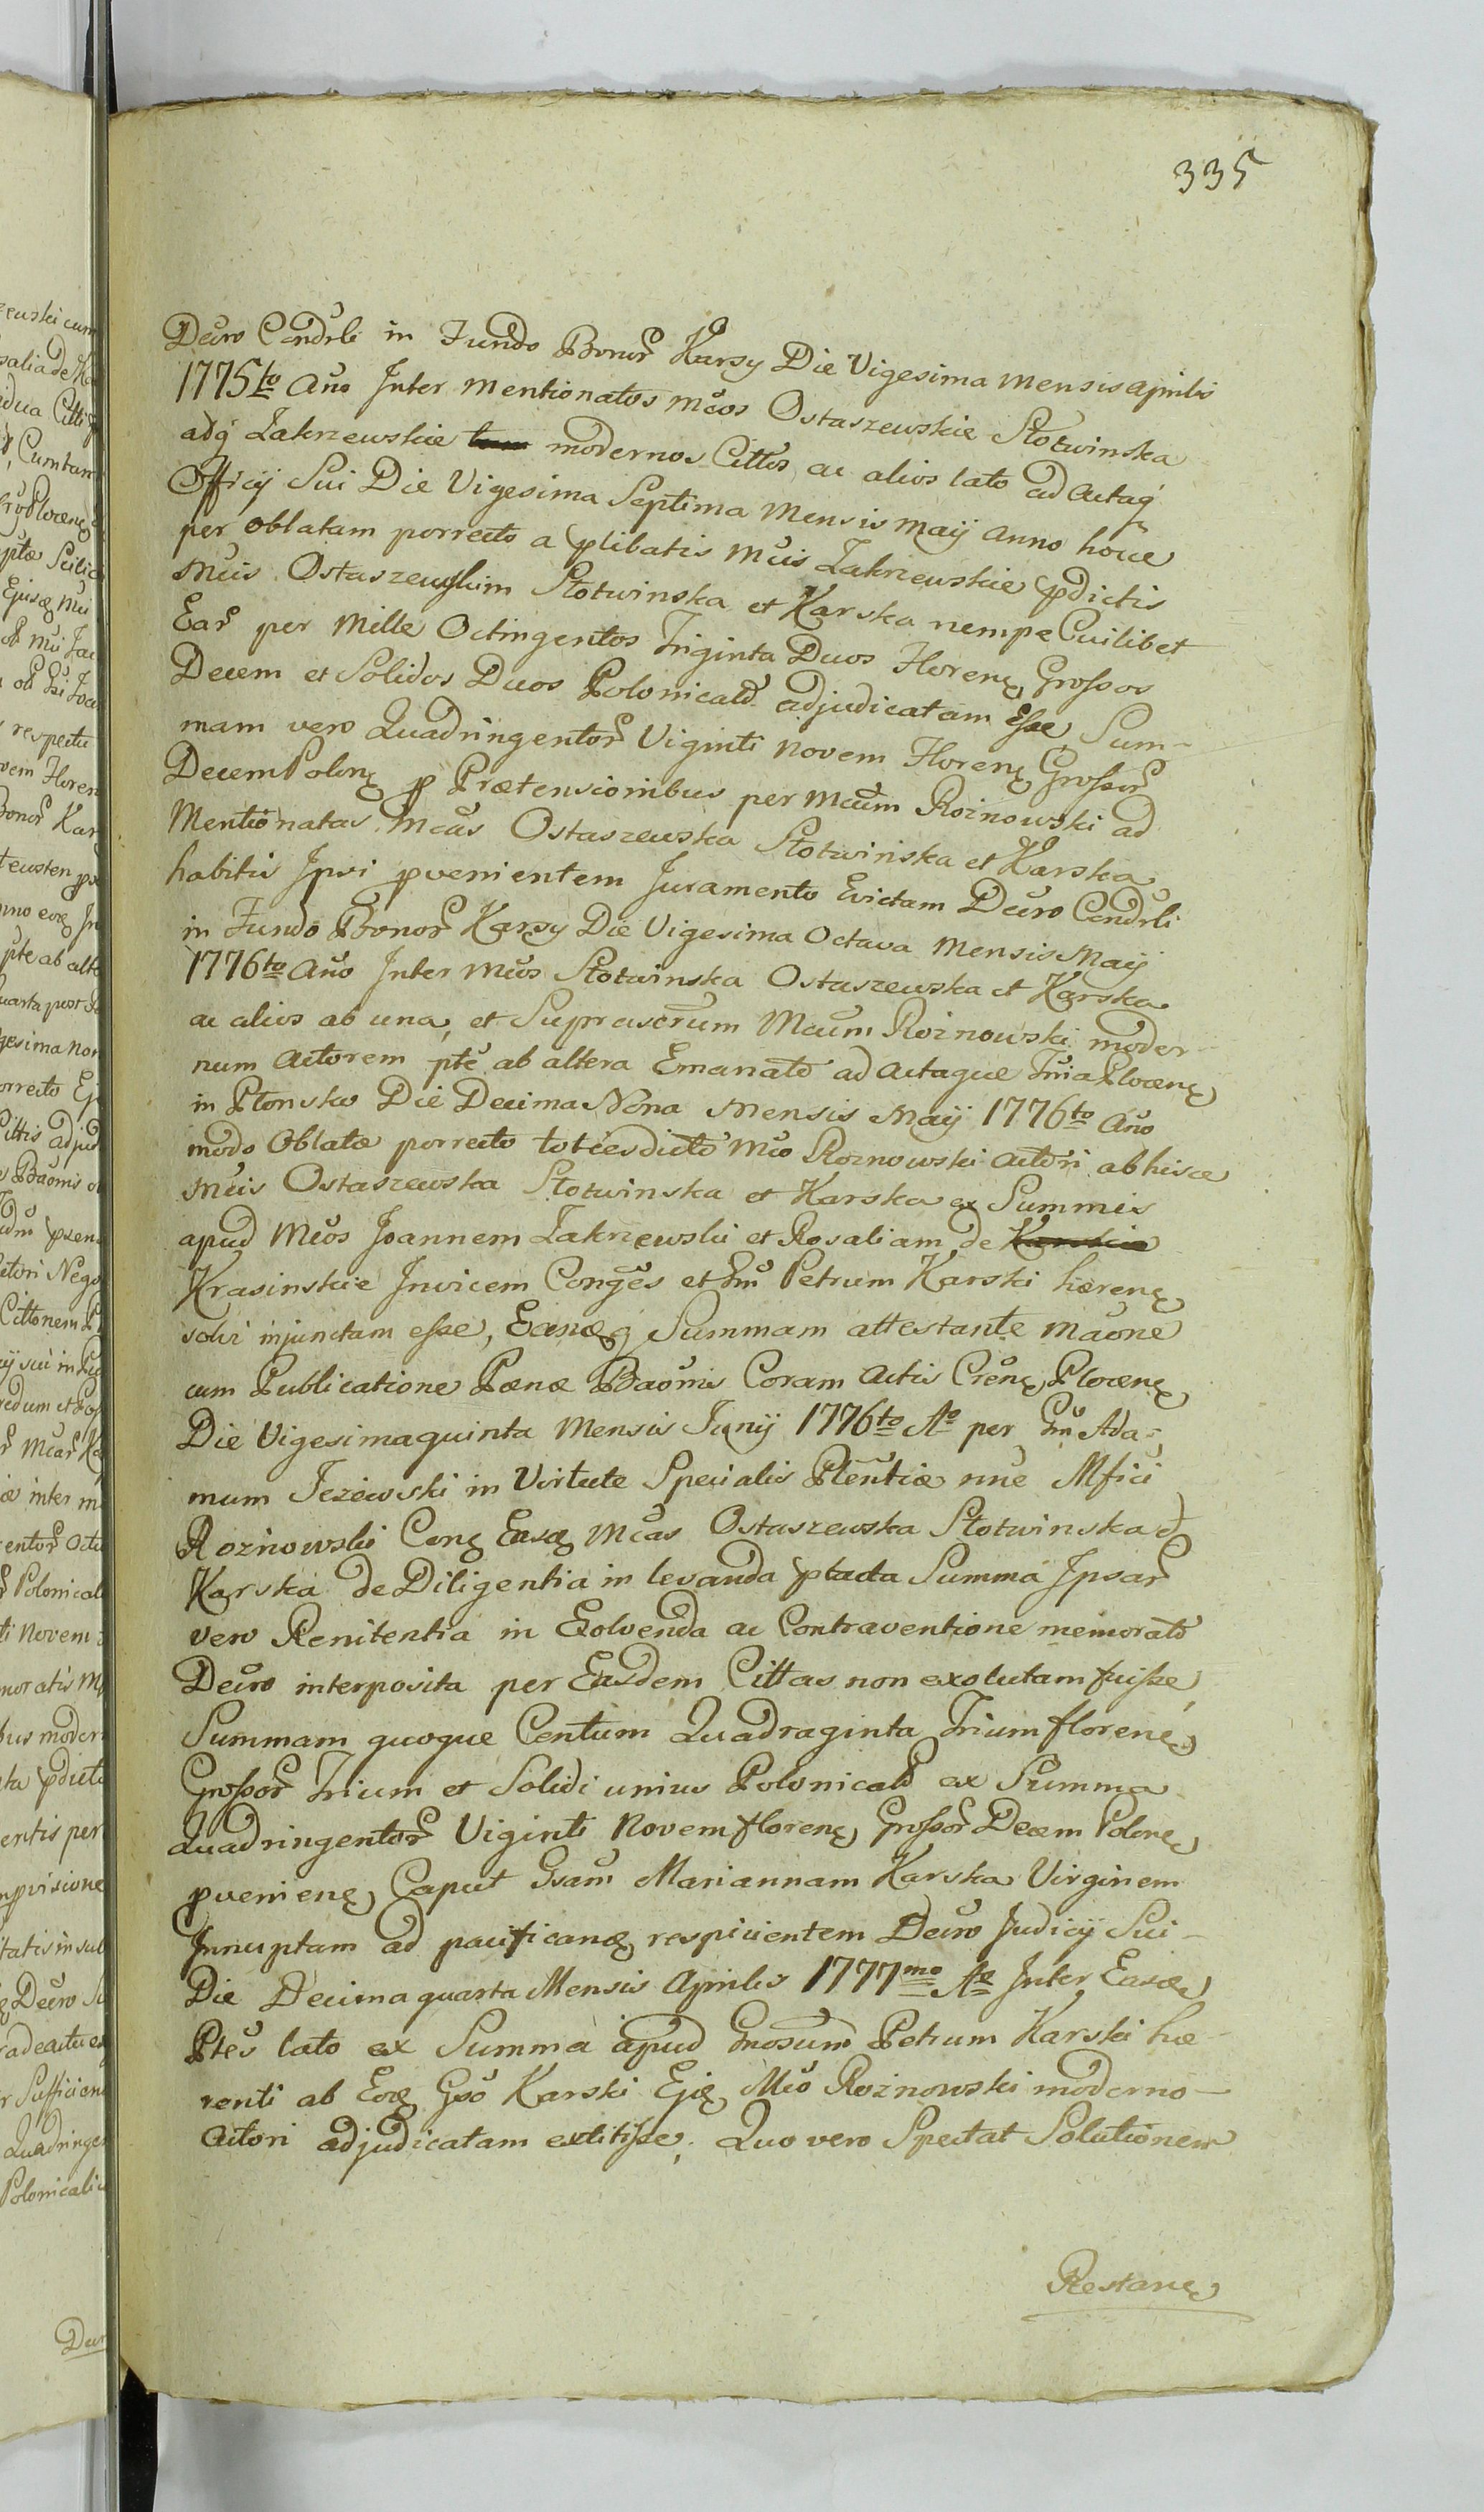 335
Decro Condrli in Fundo Bonor Karsy Die Vigesima mensis aprilis
1775to Ano Inter mentionatos Mcos Ostaszewskie Słotwinska
adq Zakrzewskie modernos Cittos, ac alios lato ad actaq
Officij Sui Die Vigesima Septima Mensis Maij anno hocce
per oblatam porrecto a plibatis Mcis Zakrzewskie pdictis
Mcis Ostaszewskim Słotwinska et Karska nempe Cuilibet
Ear per Mille Octingentos Triginta Duos Floren Grossos
Decem et Solidos Duos Polonicald adjudicatam Esse, Sum-
mam vero Quadringentor Viginti novem Floren Grossor
Decem Polon p Prætensionibus per Mcum Roznowski ad
Mentionatas Mcas Ostaszewska Słotwinska et Karska
habitis Ipsi pvenientem Juramento Evictam Decro Condrli
in Fundo Bonor Karsy Die Vigesima Octava Mensis Maij
1776to Ano Inter Mcos Słotwinska Ostaszewska et Karska
ac alios ab una, et Suprascrum Mcum Roznowski moder-
num Actorem pte ab altera Emanato ad actaque Tria Plocen
in Płonsko Die Decima Nona Mensis Maij 1776to Ano
modo Oblatæ porrecto totiesdicto Mco Roznowski Actori ab hisce
Mcis Ostaszewska Słotwinska et Karska ex Summis
apud Mcos Joannem Zakrzewski et Rosaliam de Karskie
Krasinskie Invicem Conges et Gm Petrum Karski hæren
solvi injunctam esse, Eandq Summam attestante Maone
cum Publicatione Pænæ Baonis Coram Actis Cren Plocen
Die Vigesimaquinta Mensis Junij 1776to Ao per Gm Ada-
mum Jezewski in Virtute Specialis Plentiæ nne Mfici
Roznowski Con Easd Mcas Ostaszewska Słotwinska et
Karska de Diligentia in levanda ptacta Summa Ipsar
vero Renitentia in Exolvenda ac Contraventione memorato
Decro interposita per Easdem Cittas non exolutam fuisse,
Summam quoque Centum Quadraginta Trium floren
Grossor Trium et Solidi unius Polonicald ex Summa
Quadringentor Viginti Novem floren Grossor Decem Polon
pvenien Caput Gsam Mariannam Karska Virginem
Innuptam ad pacificand respicientem Decro Judicij Sui-
Die Decima quarta Mensis Aprilis 1777mo Ao Inter Easd
Ptes lato ex Summa apud Gnosum Petrum Karski hæ-
renti ab Eod Gso Karski Ejd Mco Roznowski moderno-
Actori adjudicatam extitisse. Quo vero Spectat Solutionem
Restan